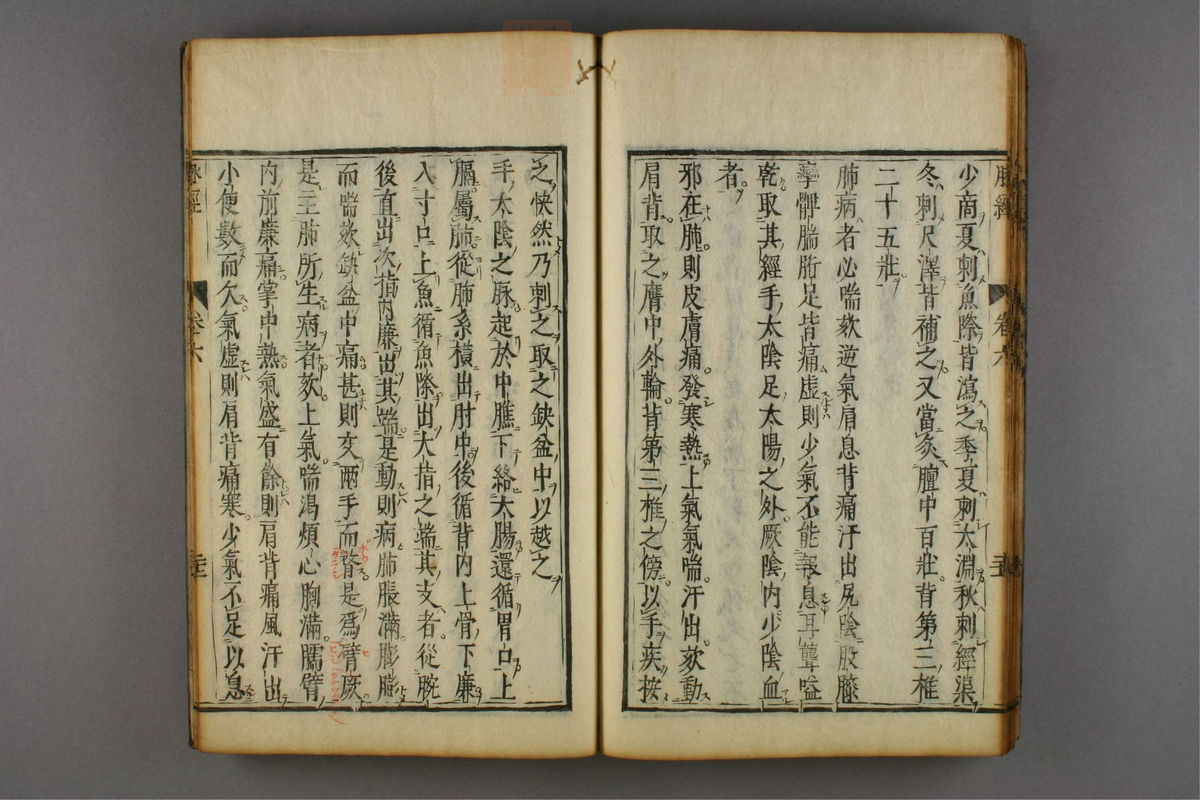 脉經 卷六
少商夏刺魚際皆瀉之季夏刺大淵秋刺經渠
冬刺尺澤皆補之又當灸膻中百壯背第三椎
二十五壯
肺病者必喘欬逆氣肩息背痛汗出尻陰股膝
攣髀腨胻足皆痛虛則少氣不能報息耳聾嗌
乾取其經手太陰足太陽之外厥陰內少陰血
者
邪在肺則皮膚痛發寒熱上氣氣喘汗出欬動
肩背取之膺中外輪背第三椎之傍以手疾按
之快然乃刺之取之缺盆中以越之
手太陰之脉起於中膲下絡大腸還循胃口上
膈屬肺從肺系橫出肘中後循臂內上骨下廉
入寸口上魚循魚際出大指之端其支者從腕
後直出次指內廉出其端是動則病肺脹滿膨膨
而喘欬缺盆中痛甚則交兩手而瞀是爲臂厥
是主肺所生病者欬上氣喘渴煩心胸滿臑臂
內前廉痛掌中熱氣盛有餘則肩背痛風汗出
小便數而欠氣虛則肩背痛寒少氣不足以息
脉經 卷六